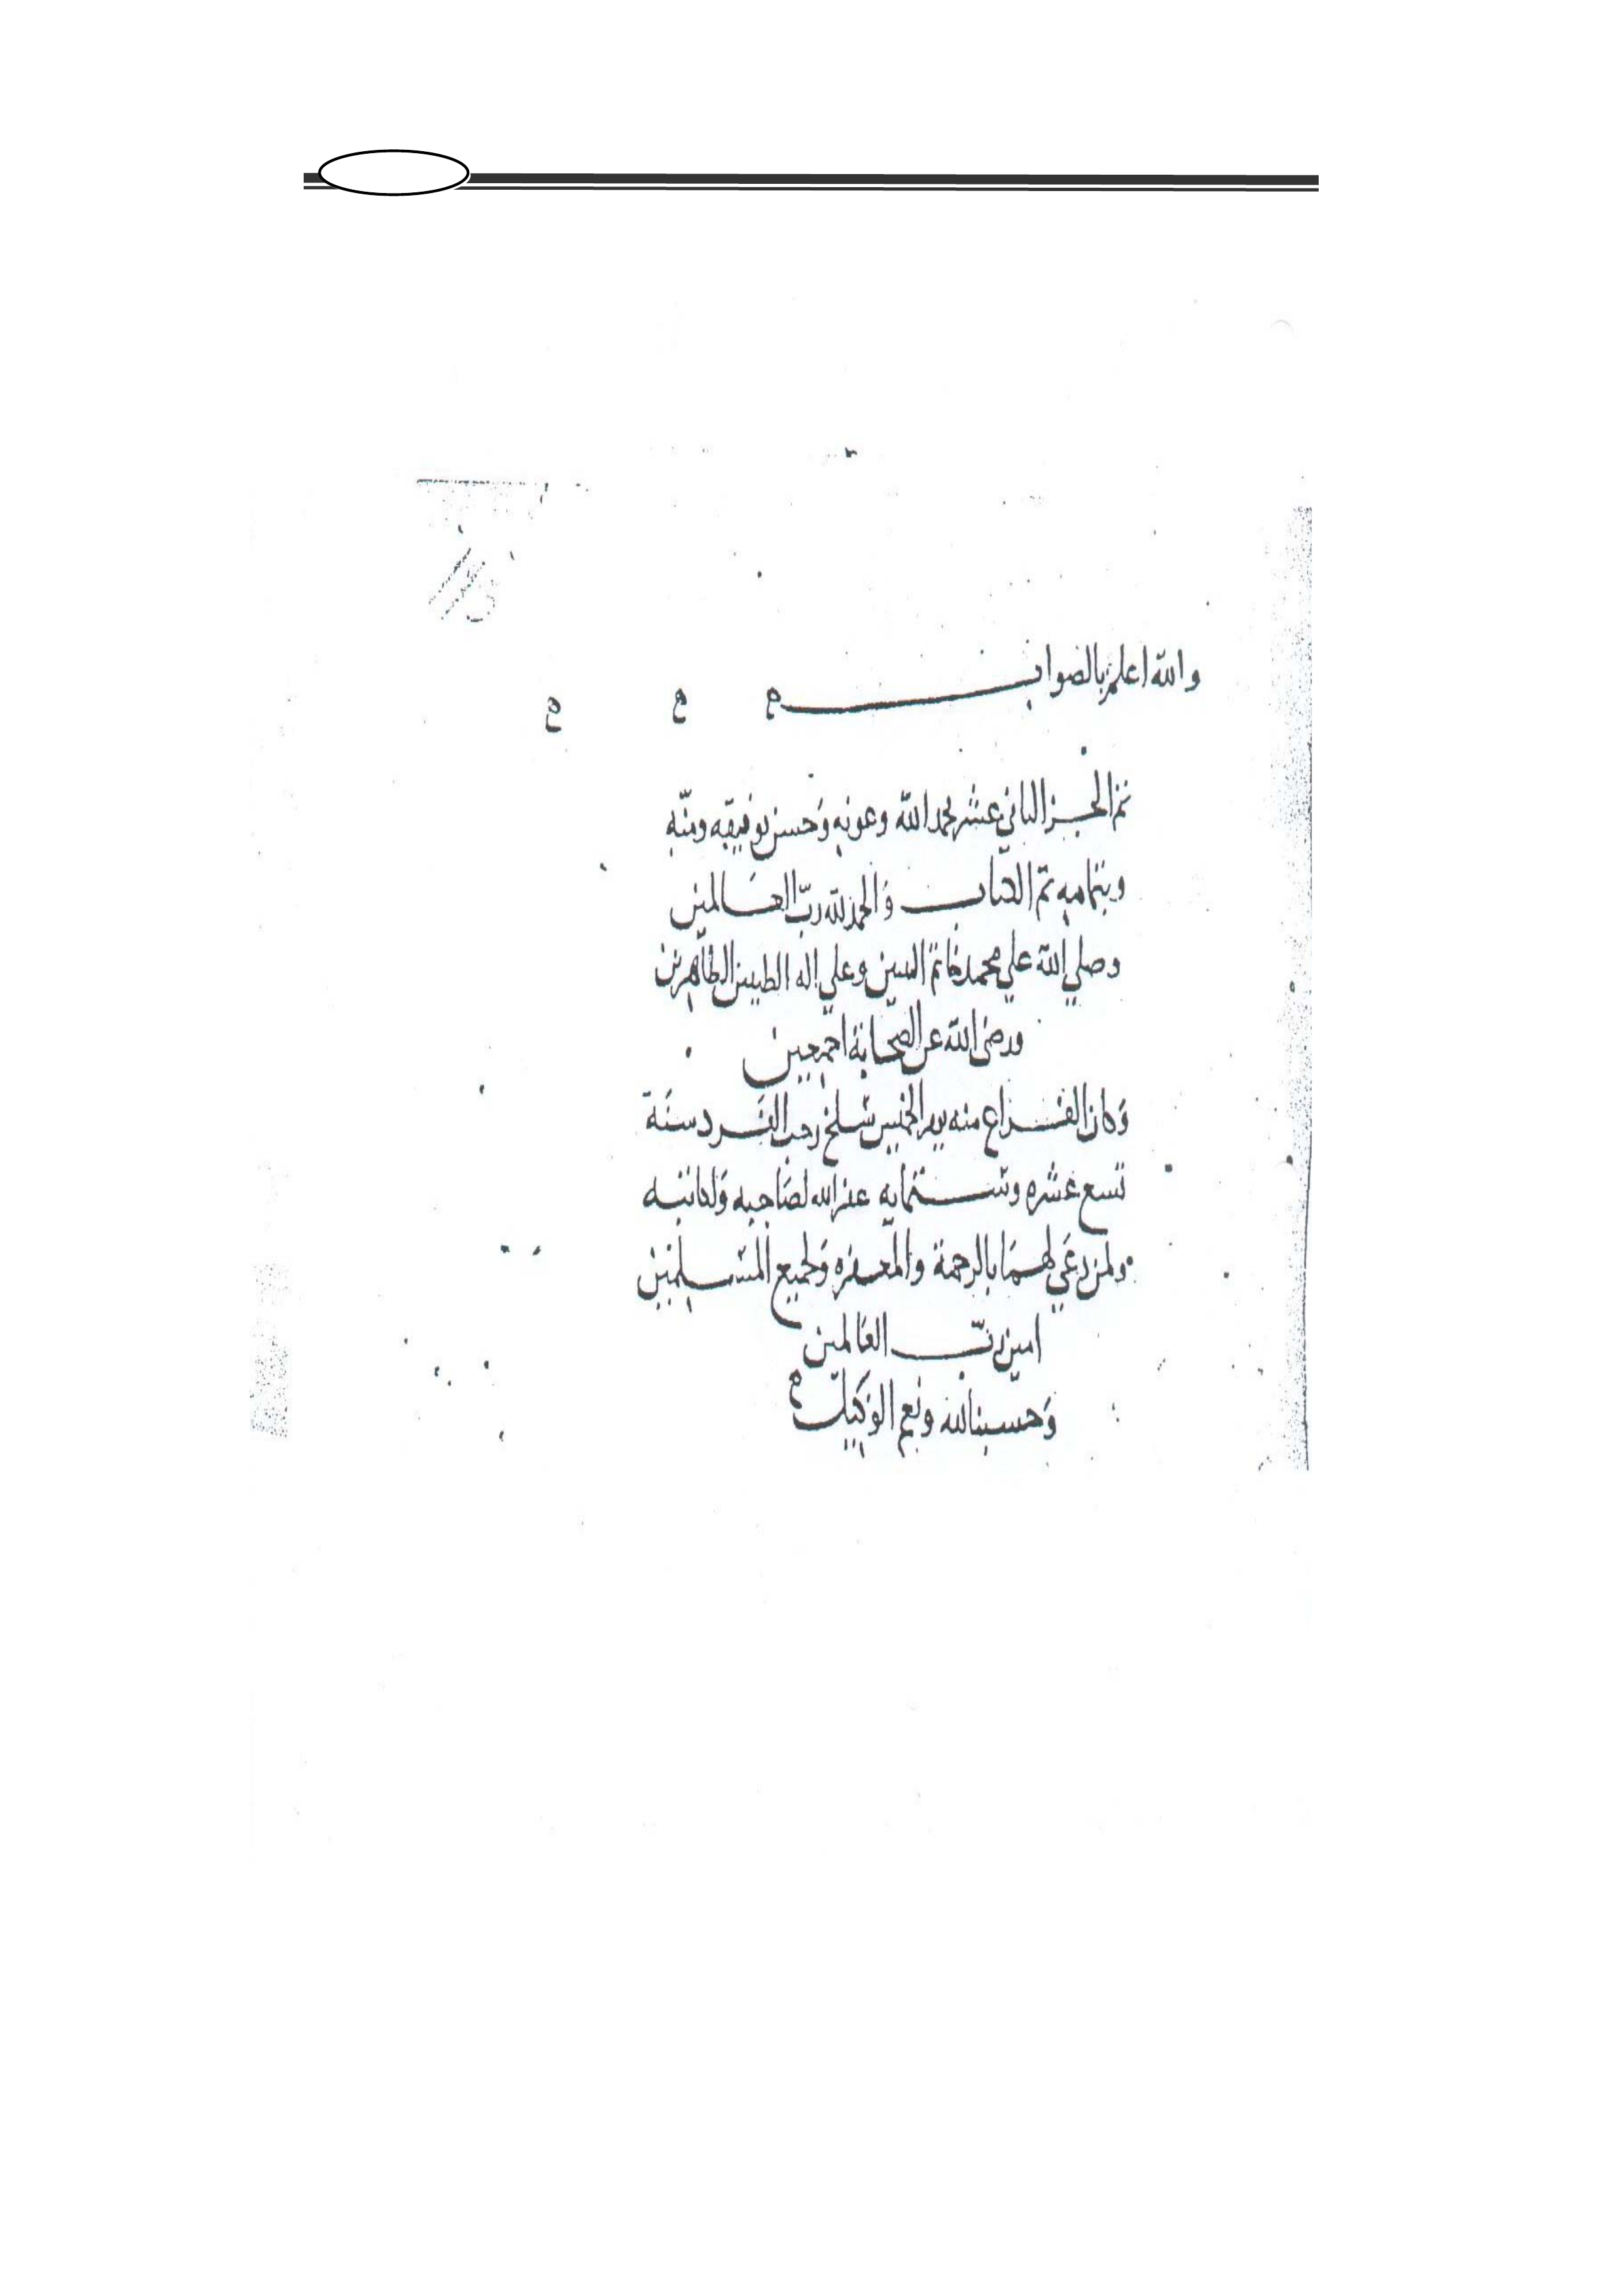 والله اعلم بالصواب ح ح ح
تم الجز الثاني عشر بحمد الله وعونه وحسن توفيقه ومنه
وبتمامه تم الكتاب والحمد لله رب العالمين
وصلي الله علي محمد خاتم النبيين وعلي اله الطيبين الطاهرين
ورضى الله عن الصحابة اجمعين
وكان الفراغ منه يوم الخميس سلخ رجب الفرد سنة
تسع عشره وستمايه غفر الله لصاحبه ولكاتبه
ولمن دعي لهما بالرحمة والمغفره ولجميع المسلمين
امين رب العالمين
وحسبنا الله ونعم الوكيل